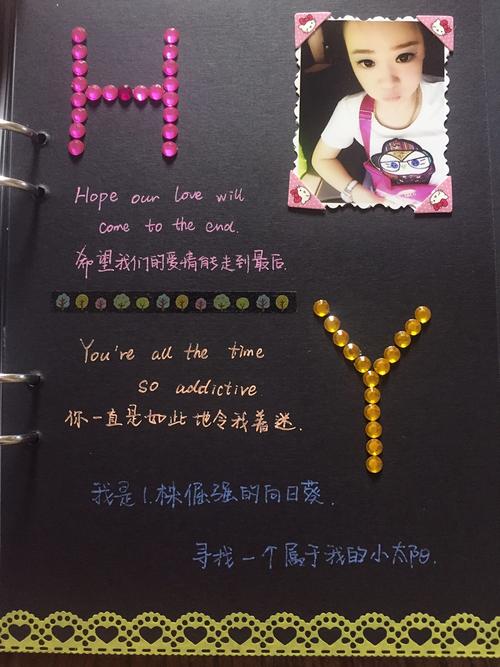 H
Hope our love will
come to the end.
希望我们的爱情能走到最后.
Y
You're all the time
so addictive
你一直是如此地令我着迷.
我是1.株倔强的向日葵.
寻找一个属于我的小太阳.